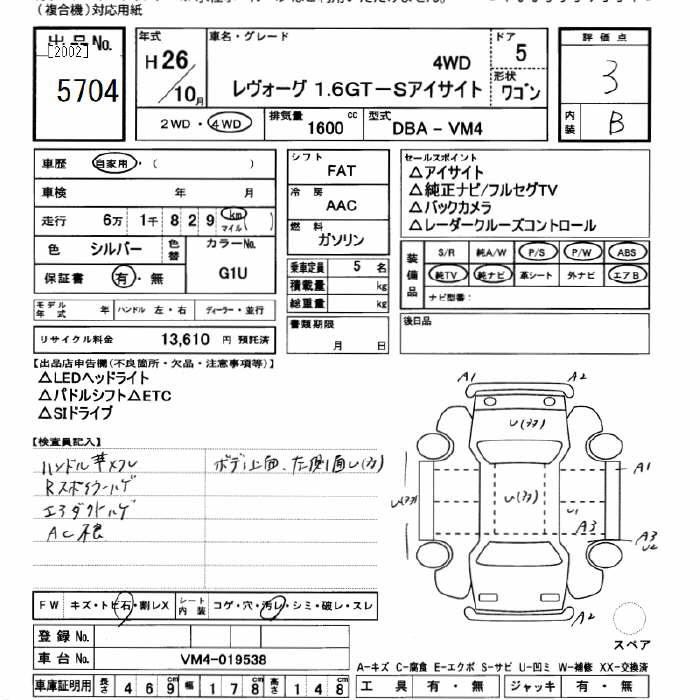 (複合機)対応用紙
出品No.
[2002]
5704
年式
H26
/10月
車名・グレード
4WD
レヴォーグ 1.6GT-Sアイサイト
ドア
5
形状
ワゴン
2WD・4WD
排気量
1600 cc
型式
DBA-VM4
評価点
3
内装
B
車歴 自家用・( )
車検 年 月
走行 6万 1千 8 2 9 km マイル ( )
色 シルバー 色替 カラーNo.
G1U
保証書 有・無
モデル年式 年 ハンドル 左・右 ディーラー・並行
リサイクル料金 13,610 円 預託済
シフト
FAT
冷房
AAC
燃料
ガソリン
乗車定員 5 名
積載量 kg
総重量 kg
書類期限
月 日
セールスポイント
△アイサイト
△純正ナビ/フルセグTV
△バックカメラ
△レーダークルーズコントロール
装備品
S/R 純A/W P/S P/W ABS
純TV 純ナビ 革シート 外ナビ エアB
ナビ型番:
後日品
【出品店申告欄(不良箇所・欠品・注意事項等)】
△LEDヘッドライト
△パドルシフト△ETC
△SIドライブ
【検査員記入】
ハンドル革スレ
Rスポイラーハゲ
エアダクトハゲ
AC不良
ボディ上面、左側面U(ヌタ)
A1
A2
U(ヌタ)
U(ヌタ)
U(ヌタ)
A1
U1
A3
A3
U2
A2
スペア
FW キズ・トビ石・割レX シート内装 コゲ・穴・汚レ・シミ・破レ・スレ
登録No.
車台No. VM4-019538
車庫証明用 長さ 4 6 9 cm 幅 1 7 8 cm 高さ 1 4 8 cm
A-キズ C-腐食 E-エクボ S-サビ U-凹ミ W-補修 XX-交換済
工具 有・無 ジャッキ 有・無